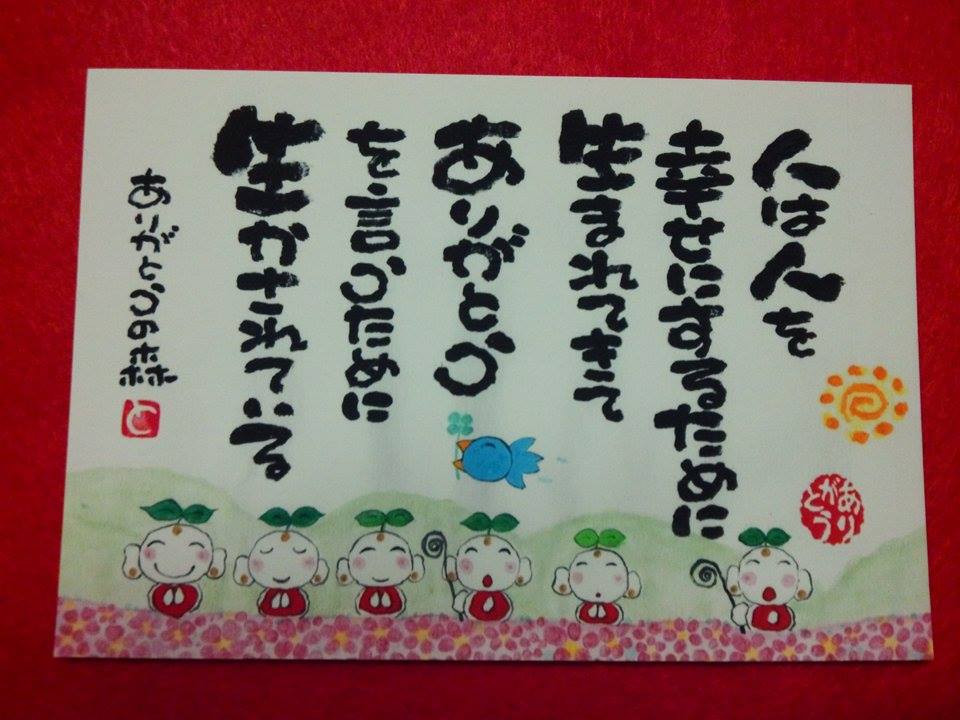 人は人を
幸せにするために
生まれてきて
ありがとう
を言うために
生かされている
ありがとうの森
ありがとう